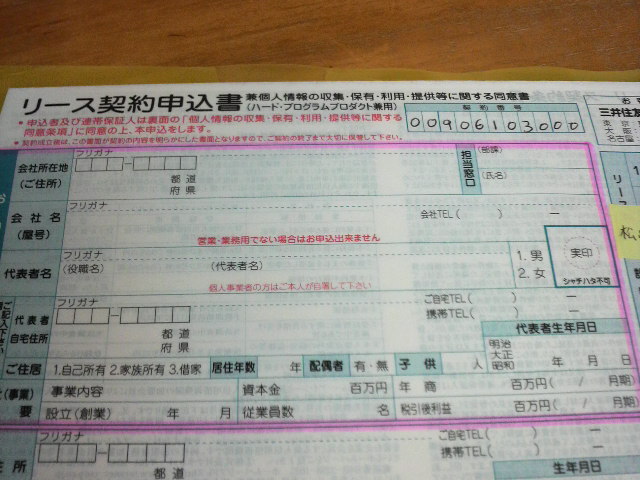 リース契約申込書 兼個人情報の収集・保有・利用・提供等に関する同意書
(ハード・プログラムプロダクト兼用)
契約番号
00906103000
三井住友
東京
大阪
名古屋
・申込者及び連帯保証人は裏面の「個人情報の収集・保有・利用・提供等に関する
同意条項」に同意の上、本申込をします。
・契約成立後は、この書面が契約の内容を明らかにした書面となりますので、ご契約の終了まで大切に保管して下さい。
会社所在地
(ご住所)
フリガナ
都道
府県
担当窓口
(部課)
(氏名)
会社名
(屋号)
フリガナ
会社TEL( ) ー
営業・業務用でない場合はお申込出来ません
代表者名
フリガナ
(役職名) (代表者名)
個人事業者の方はご本人が自署して下さい
1.男
2.女
実印
シャチハタ不可
代表者
自宅住所
フリガナ
都道
府県
ご自宅TEL( ) ー
携帯TEL( ) ー
代表者生年月日
明治
大正
昭和
年 月 日
ご住居 1.自己所有 2.家族所有 3.借家 居住年数 年 配偶者 有・無 子供 人
(事業)
要
事業内容 資本金 百万円 年商 百万円( / 月期)
設立(創業) 年 月 従業員数 名 税引後利益 百万円( / 月期)
フリガナ
都道
ご自宅TEL( ) ー
携帯TEL( ) ー
住所
生年月日